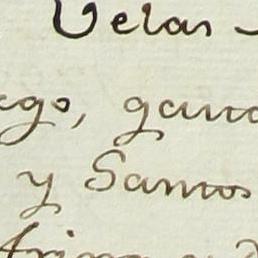 Velas
ego, gana
y Santos